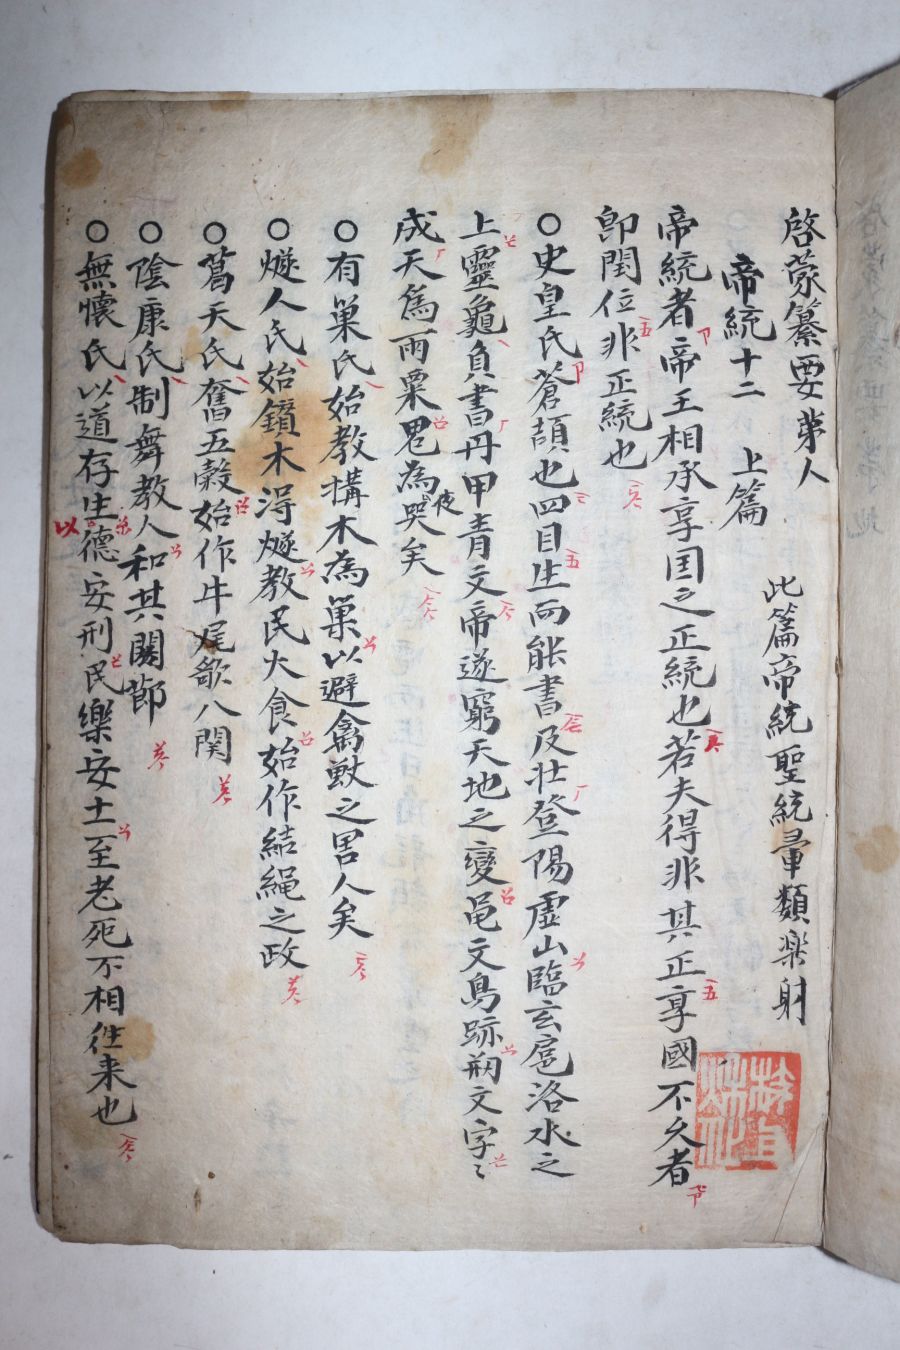 啓蒙纂要第人
帝統十二 上篇 此篇帝統聖統彙類樂射
帝統者帝王相承享国之正統也若夫得非其正享國不久者
即閏位非正統也
○史皇氏蒼頡也四目生而能書及壮登陽虛山臨玄扈洛水之
上靈龜負書丹甲青文帝遂窮天地之變黾文鳥跡刱文字〻
成天爲雨粟鬼為夜哭矣
○有巢氏始教構木為巢以避禽獸之害人矣
○燧人氏始鑽木淂燧教民火食始作結繩之政
○葛天氏奮五穀始作牛尾歌八関
○陰康氏制舞教人和其関節
○無懷氏以道存生以德安刑民樂安土至老死不相徃来也